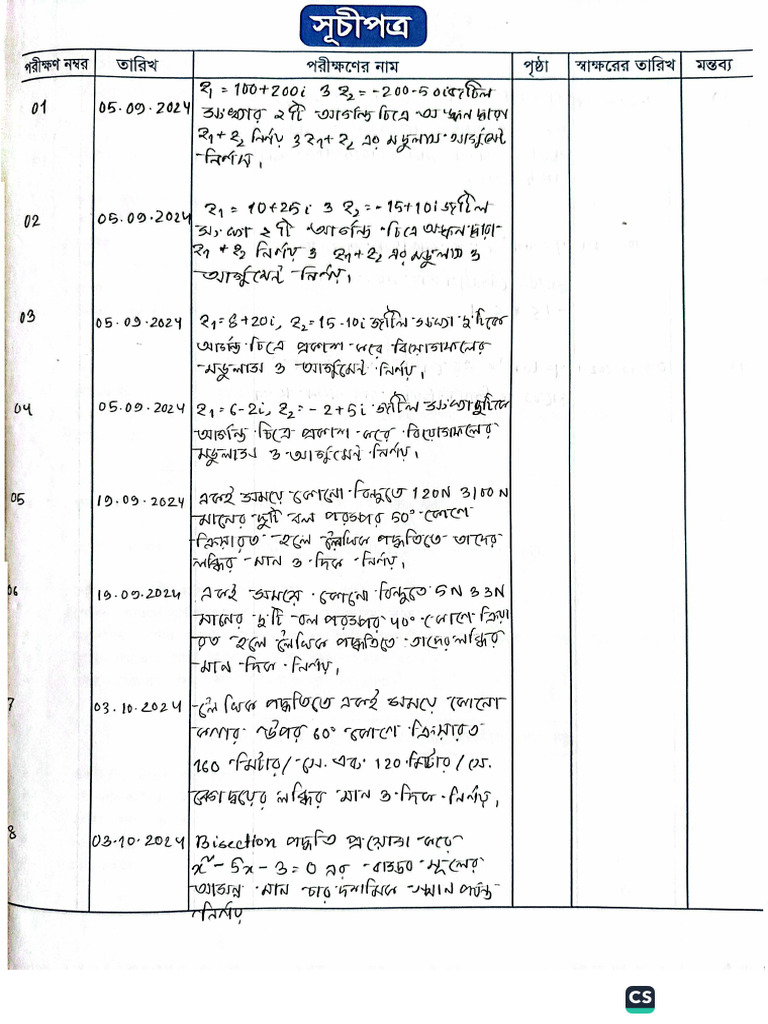 সূচীপত্র
পরীক্ষণ নম্বর তারিখ পরীক্ষণের নাম পৃষ্ঠা স্বাক্ষরের তারিখ মন্তব্য
01 05.09.2024 z₁ = 100+200i ও z₂ = -200-50i জটিল
সংখ্যার ২টি আর্গন্ড চিত্রে অঙ্কন দ্বারা
z₁ + z₂ নির্ণয় ও z₁+ z₂ এর মডুলাস আর্গুমেন্ট
নির্ণয়।
02 05.09.2024 z₁ = 10+25i ও z₂ = -15+10i জটিল
সংখ্যা ২টি আর্গন্ড চিত্রে অঙ্কন দ্বারা
z₁ + z₂ নির্ণয় ও z₁+ z₂ এর মডুলাস ও
আর্গুমেন্ট নির্ণয়।
03 05.09.2024 z₁ = 8+20i, z₂ = 15-10i জটিল সংখ্যা দুটিকে
আর্গন্ড চিত্রে প্রকাশ করে বিয়োগফলের
মডুলাস ও আর্গুমেন্ট নির্ণয়।
04 05.09.2024 z₁ = 6-2i, z₂ = -2+5i জটিল সংখ্যা দুটিকে
আর্গন্ড চিত্রে প্রকাশ করে বিয়োগফলের
মডুলাস ও আর্গুমেন্ট নির্ণয়।
05 19.09.2024 একই সময়ে কোনো বিন্দুতে 120N ও 100N
মানের দুটি বল পরস্পর 50° কোণে
ক্রিয়ারত হলে লৈখিক পদ্ধতিতে তাদের
লব্ধির মান ও দিক নির্ণয়।
06 19.09.2024 একই সময়ে কোনো বিন্দুতে 5N ও 3N
মানের দুটি বল পরস্পর 40° কোণে ক্রিয়া
রত হলে লৈখিক পদ্ধতিতে তাদের লব্ধির
মান দিক নির্ণয়।
7 03.10.2024 লৈখিক পদ্ধতিতে একই সময়ে কোনো
কণার উপর 60° কোণে ক্রিয়ারত
160 মিটার/সে. এবং 120 মিটার/সে.
বেগদ্বয়ের লব্ধির মান ও দিক নির্ণয়।
8 03.10.2024 Bisection পদ্ধতি প্রয়োগ করে
x² - 5x - 3 = 0 এর বাস্তব মূলের
আসন্ন মান চার দশমিক স্থান পর্যন্ত
নির্ণয়
CS